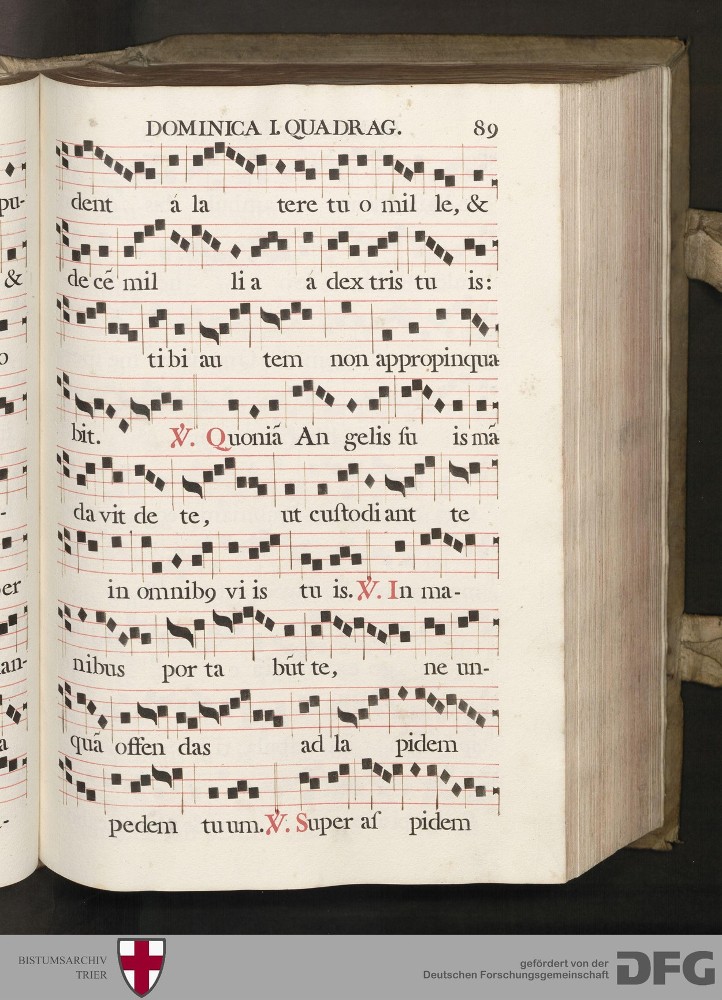 DOMINICA I. QUADRAG. 89
dent á la tere tu o mil le, &
de cẽ mil li a á dex tris tu is:
ti bi au tem non appropinqua
bit. ℣. Quoniã An gelis ſu is mã
da vit de te, ut cuſtodi ant te
in omnibꝯ vi is tu is. ℣. In ma-
nibus por ta bũt te, ne un-
quã offen das ad la pidem
pedem tu um. ℣. Super aſ pidem
pu-
&
o
-
er
an-
a
-
BISTUMSARCHIV
TRIER
gefördert von der
Deutschen Forschungsgemeinschaft
DFG